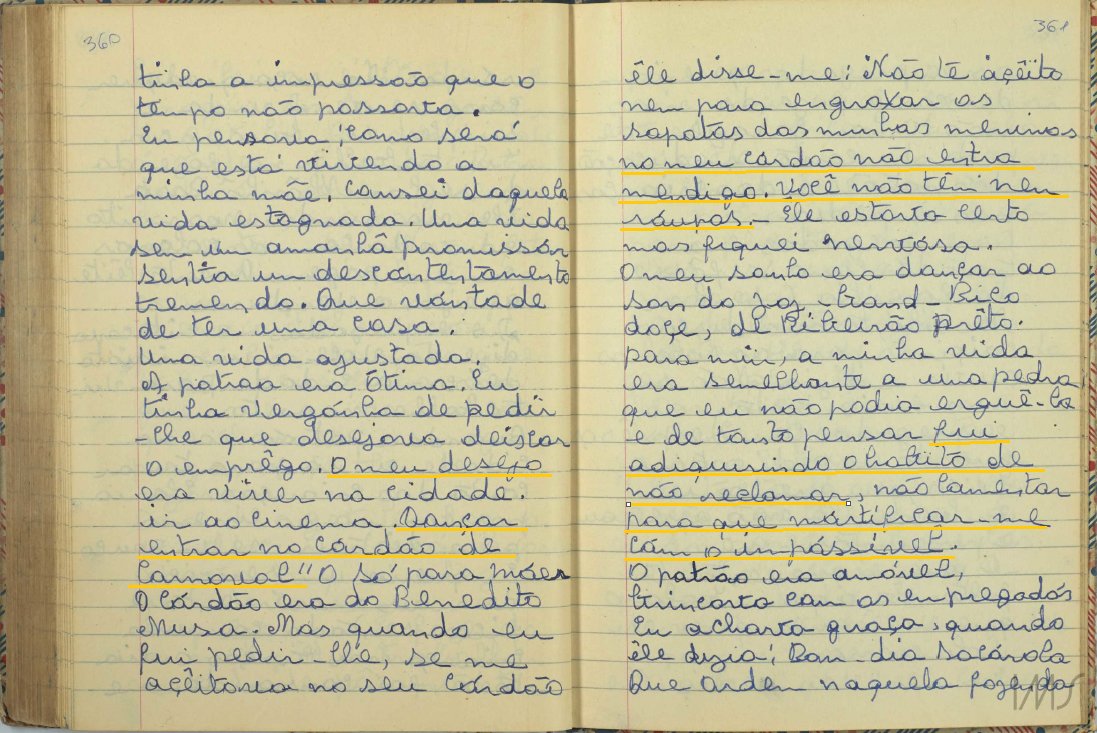 360
tinha a impressão que o
tempo não passava.
Eu pensava: Como será
que está vivendo a
minha mãe. Cansei daquela
vida estagnada. Uma vida
sem um amanhã promissôr
sentia um descontentamento
tremendo. Que vontade
de ter uma casa.
Uma vida ajustada.
A patroa era Ótima. Eu
tinha vergônha de pedir
-lhe que desejava deixar
o emprêgo. O meu desejo
era viver na cidade.
ir ao cinema. Dançar
entrar no córdão de
Carnaval" O Só para moer
O Córdão era do Benedito
Musa. Mas quando eu
fui pedir-lhe, se me
açêitava no seu Córdão
361
êle disse-me: Não te açêito
nem para engraxar os
sapatos das minhas meninas
no meu córdão não entra
mendigo. Você não têm nem
róupas. - Ele estava Certo
mas fiquei nervósa.
O meu sonho era dançar ao
son do Jaz-Band-Bico
doçe, de Ribeirão prêto.
para mim, a minha vida
era semelhante a uma pedra
que eu não podia erguê-la
e de tanto pensar fui
adiquirindo o habito de
não reclamar, não lamentar
para que mórtificar-me
cóm o impóssivel.
O patrão era amóvel,
brincava com os empregadós
Eu achava graça, quando
êle dizia: Bom-dia Socórola
Que Ordem naquela fazenda
IMS